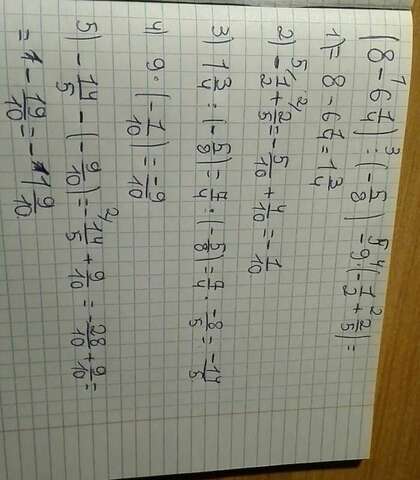 (8 - 6 1/4) : (- 5/8) - 9·(- 1/2 + 2/5) =
1) = 8 - 6 1/4 = 1 3/4
2) - 1/2 + 2/5 = - 5/10 + 4/10 = - 1/10
3) 1 3/4 : (- 5/8) = 7/4 : (- 5/8) = 7/4 · -8/5 = -14/5
4) 9·(- 1/10) = -9/10
5) - 14/5 - (- 9/10) = - 14/5 + 9/10 = -28/10 + 9/10 =
= - 19/10 = -1 9/10